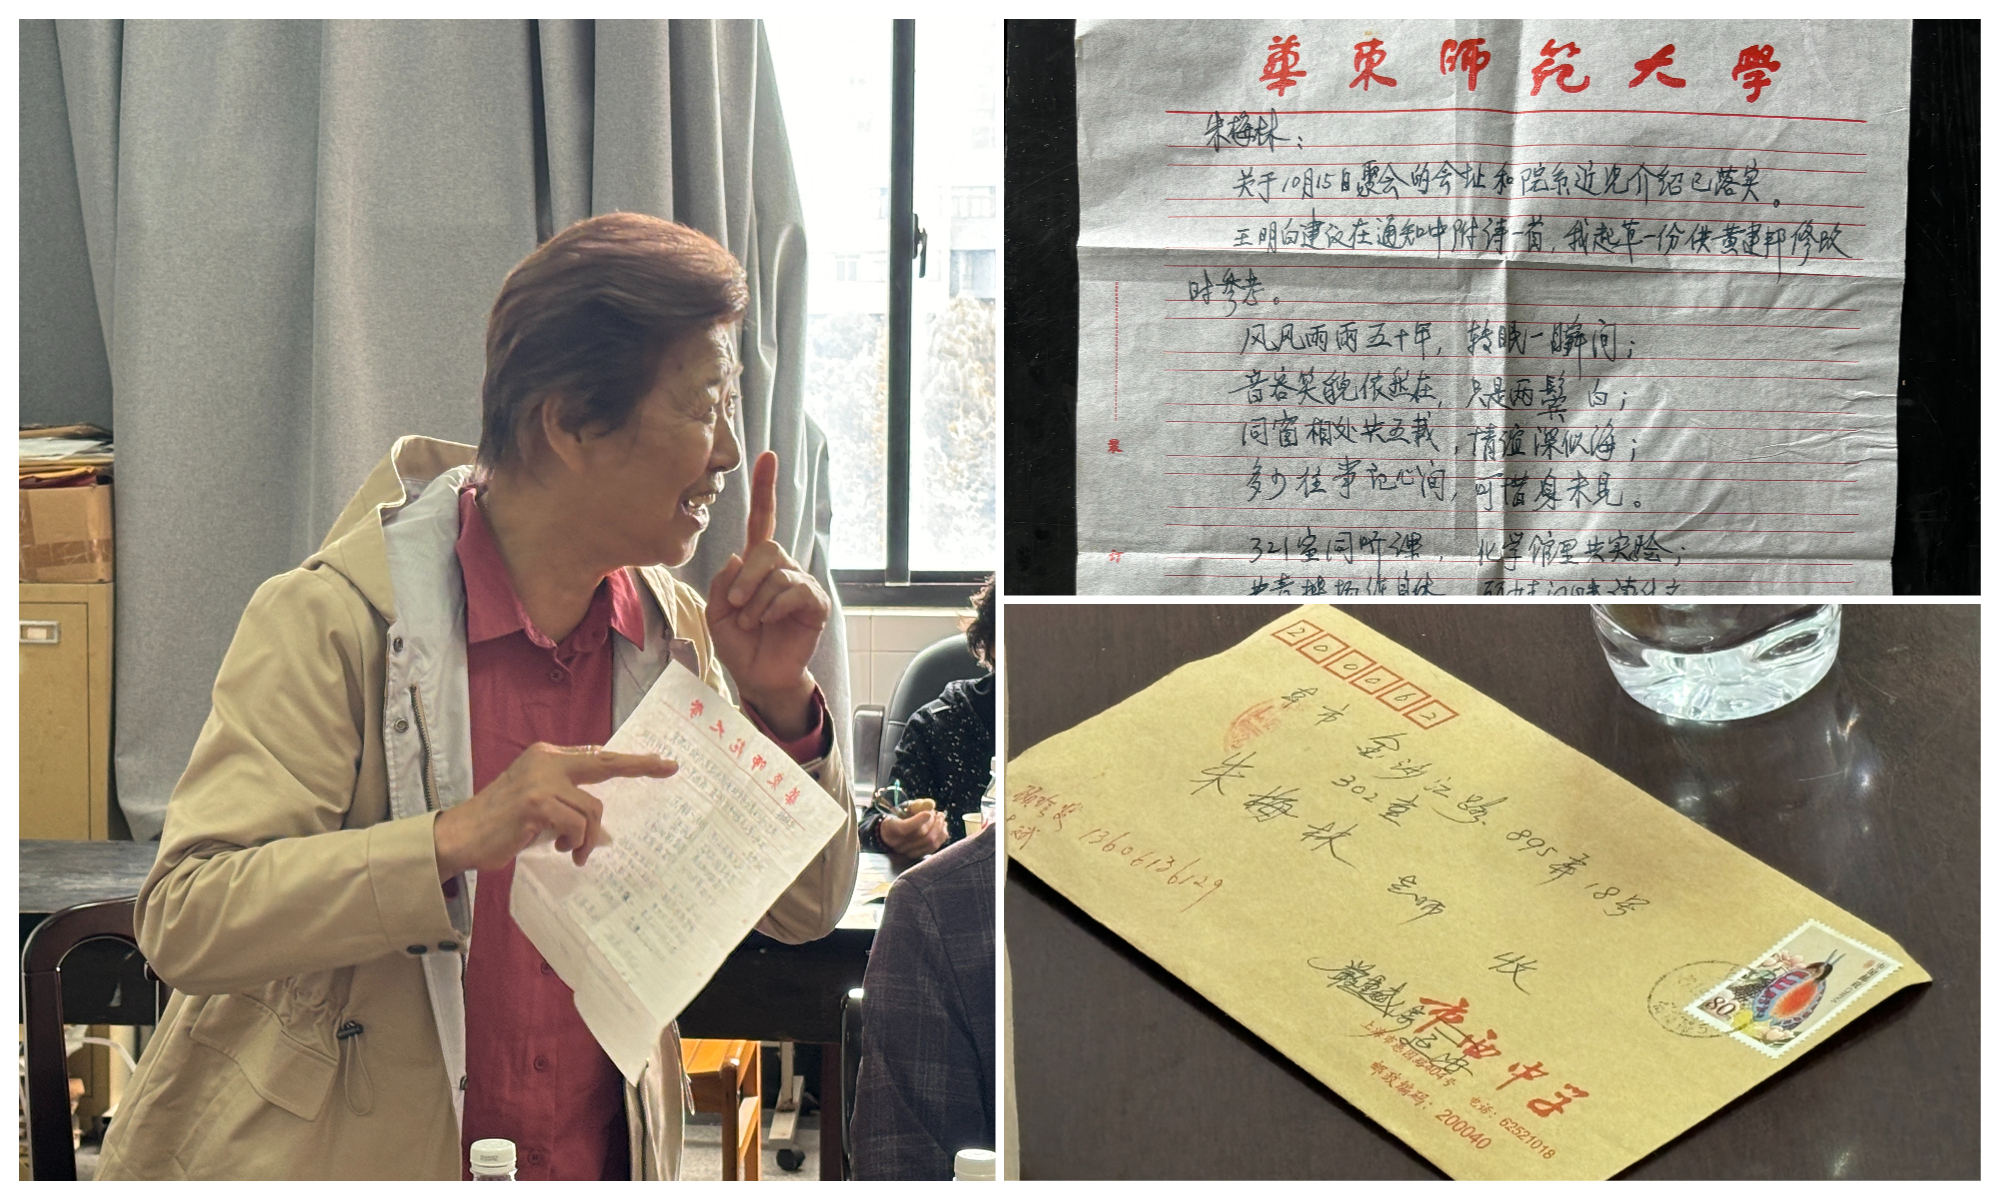 華東師範大學
朱梅林：
关于10月15日聚会的会址和院系近况介绍已落实。
王明白建议在通知中附诗一首，我起草一份供黄建邦修改
时参考。
风风雨雨五十年，转眼一瞬间；
音容笑貌依然在，只是两鬓白；
同窗相处共五载，情谊深似海；
多少往事记心间，可惜身未见。
321室同听课，化学馆里共实验；
華東師範大學
200062
本市
金沙江路895弄18号
302室
朱梅林
老师
收
13606136129
市西中学
上海市愚园路404号
电话：62521018
邮政编码：200040
80
中国邮政 CHINA